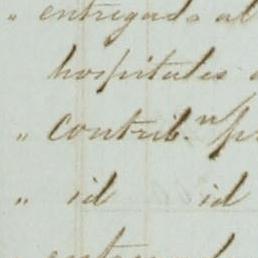 „ entregado al
hospitales
„ contrib.ⁿ p
„ id id